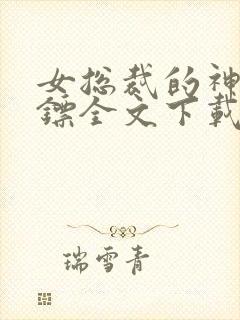 女总裁的神
镖全文下载
瑞雪青